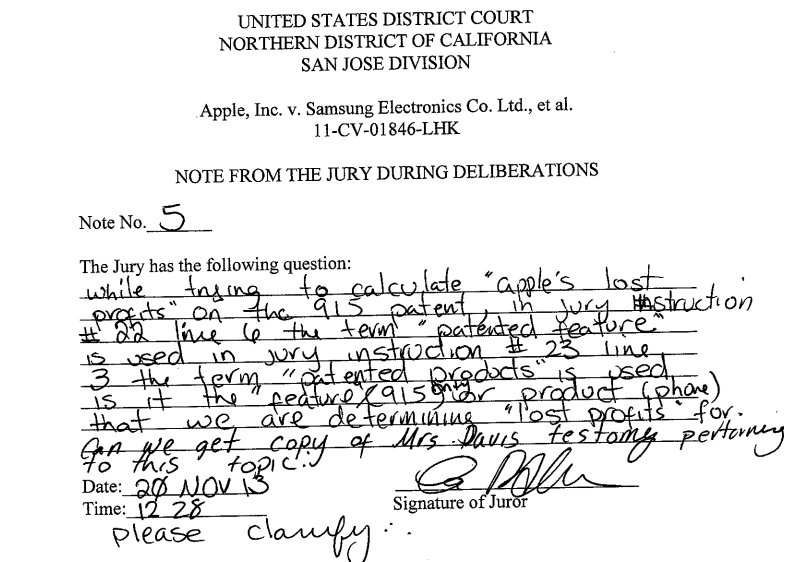 UNITED STATES DISTRICT COURT
NORTHERN DISTRICT OF CALIFORNIA
SAN JOSE DIVISION
Apple, Inc. v. Samsung Electronics Co. Ltd., et al.
11-CV-01846-LHK
NOTE FROM THE JURY DURING DELIBERATIONS
Note No. 5
The Jury has the following question:
while trying to calculate "apple's lost
profits" on the 915 patent, in jury instruction
# 22 line 6 the term "patented feature"
is used in jury instruction # 23 line
3 the term "patented products" is used
is it the "feature (915) only or product (phone)
that we are determining "lost profits" for.
Can we get copy of Mrs Davis testomy pertorning
to this topic.
Date: 20 NOV 13
Signature of Juror
Time: 12 28
please clarify.